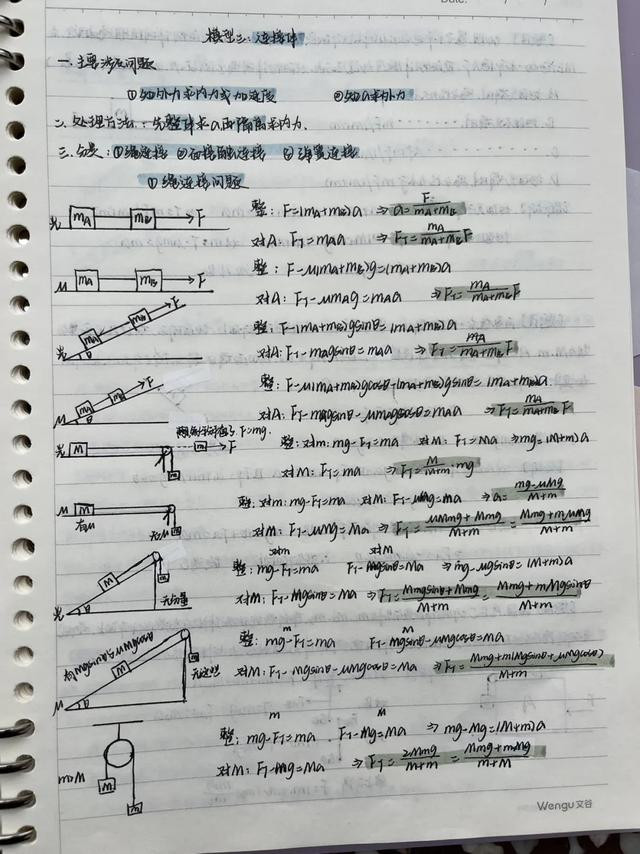 Date: / /
模型三:连接体
一.主要涉及问题
①知外力求内力或加速度 ②知a求外力
二.处理方法:先整体求a再隔离求内力.
三.分类:①绳连接 ②直接接触连接 ③弹簧连接
①绳连接问题
光 mA mB F 整: F=(mA+mB)a ⇒ a=F/(mA+mB)
对A: FT=mAa ⇒ FT=mA/(mA+mB)F
μ mA mB F 整: F-μ(mA+mB)g=(mA+mB)a
对A: FT-μmAg=mAa ⇒ FT=mA/(mA+mB)F
光 mA mB F θ 整: F-(mA+mB)gsinθ=(mA+mB)a
对A: FT-mAgsinθ=mAa ⇒ FT=mA/(mA+mB)F
μ mA mB F θ 整: F-μ(mA+mB)gcosθ-(mA+mB)gsinθ=(mA+mB)a
对A: FT-mAgsinθ-μmAgcosθ=mAa ⇒ FT=mA/(mA+mB)F
F=mg.
光 M m m F 整: 对m: mg-FT=ma 对M: FT=Ma ⇒ mg=(M+m)a
对M: FT=ma ⇒ FT=M/(M+m)·mg
M 有μ 无μ m 整: 对m: mg-FT=ma 对M: FT-μMg=ma ⇒ a=(mg-μMg)/(M+m)
对M: FT-μMg=Ma ⇒ FT=(μMmg+Mmg)/(M+m)=(Mmg+mμMg)/(M+m)
对m 对M
光 M θ m 整: mg-FT=ma FT-Mgsinθ=Ma ⇒ mg-Mgsinθ=(M+m)a
对M: FT-Mgsinθ=Ma ⇒ FT=(Mmgsinθ+Mmg)/(M+m)=(Mmg+mMgsinθ)/(M+m)
m M
μ M θ m 整: mg-FT=ma FT-Mgsinθ-μMgcosθ=ma
有Mgsinθ与μMgcosθ 对M: FT-Mgsinθ-μMgcosθ=Ma ⇒ FT=(Mmg+m(Mgsinθ+μMgcosθ))/(M+m)
m M
整: mg-FT=ma FT-Mg=Ma ⇒ mg-Mg=(M+m)a
M m 对M: FT-Mg=Ma ⇒ FT=2Mmg/(M+m)=(Mmg+mMg)/(m+M)
Wengu 文谷